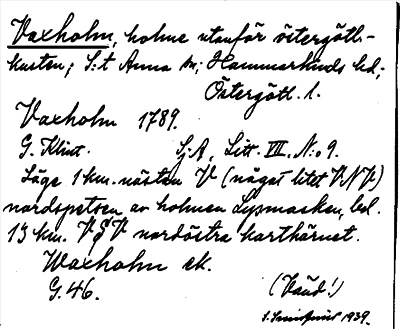 Vaxholm, holme utanför östergötl.-
kusten; S:t Anna sn; Hammarkinds hd;
Östergötl. l.
Vaxholm 1789.
G. Klint. Sj.A, Litt. VII. N:o 9.
Läge 1 km. nästen V (något litet VNV)
nordspetsen av holmen Lysmasken, bel.
13 km. VSV nordöstra karthörnet.
Waxholm ek.
G.46.
(Vaud!)
1939.